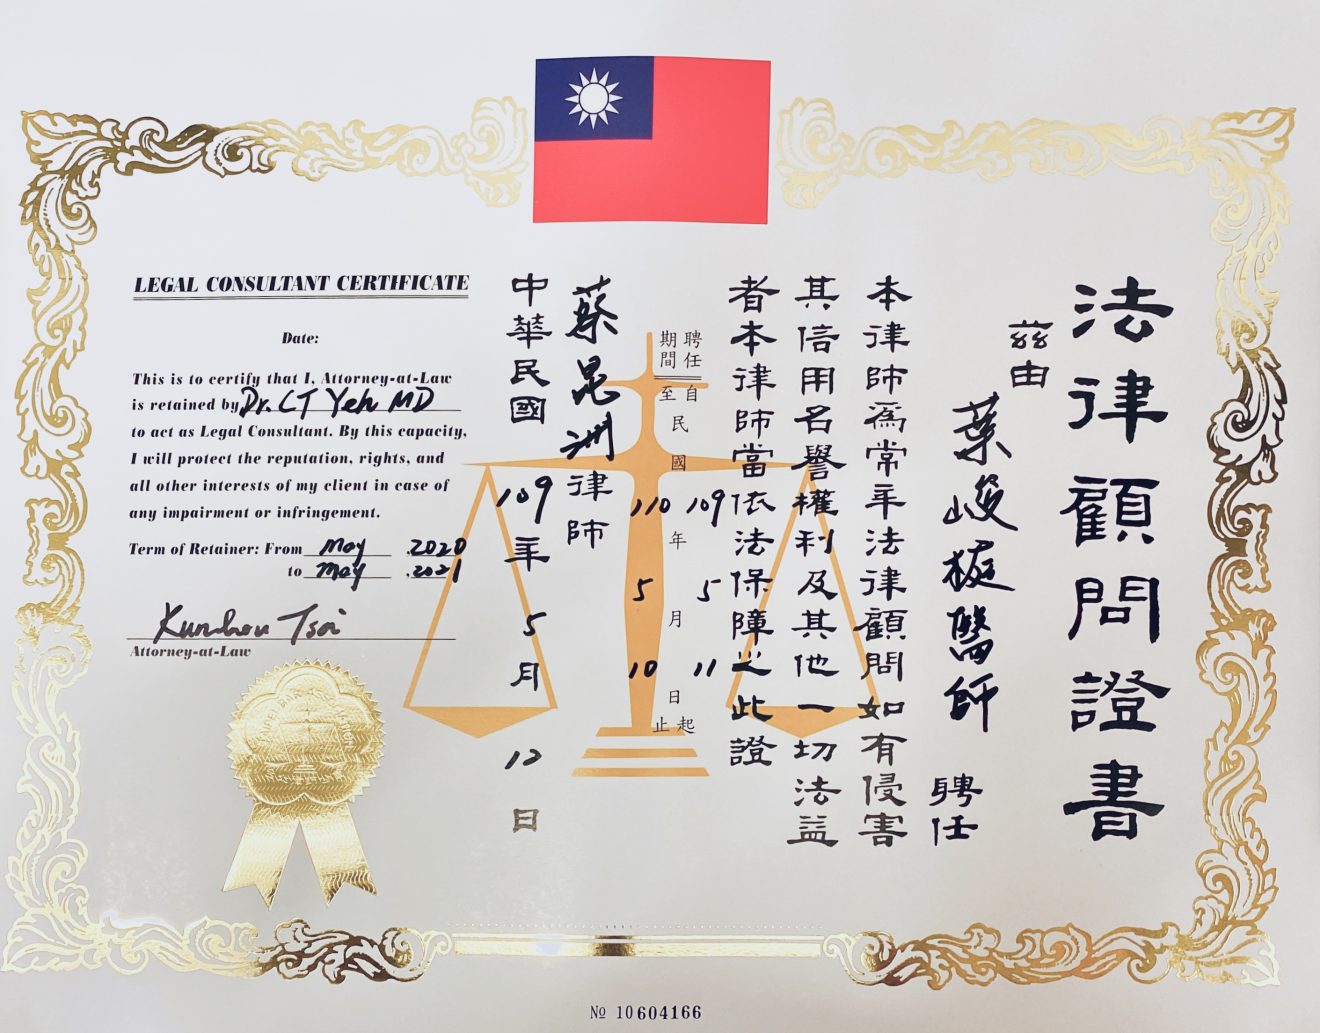 法律顧問證書
茲由
葉峻榳醫師
聘任
本律師為常年法律顧問如有侵害
其信用名譽權利及其他一切法益
者本律師當依法保障之此證
聘任期間
自民國109年5月11日起
至民國110年5月10日止
蔡昆洲律師
中華民國109年5月12日
LEGAL CONSULTANT CERTIFICATE
Date:
This is to certify that I, Attorney-at-Law
is retained by Dr. CT Yeh MD
to act as Legal Consultant. By this capacity,
I will protect the reputation, rights, and
all other interests of my client in case of
any impairment or infringement.
Term of Retainer: From May .2020
to May .2021
Kunchou Tsai
Attorney-at-Law
№ 10604166